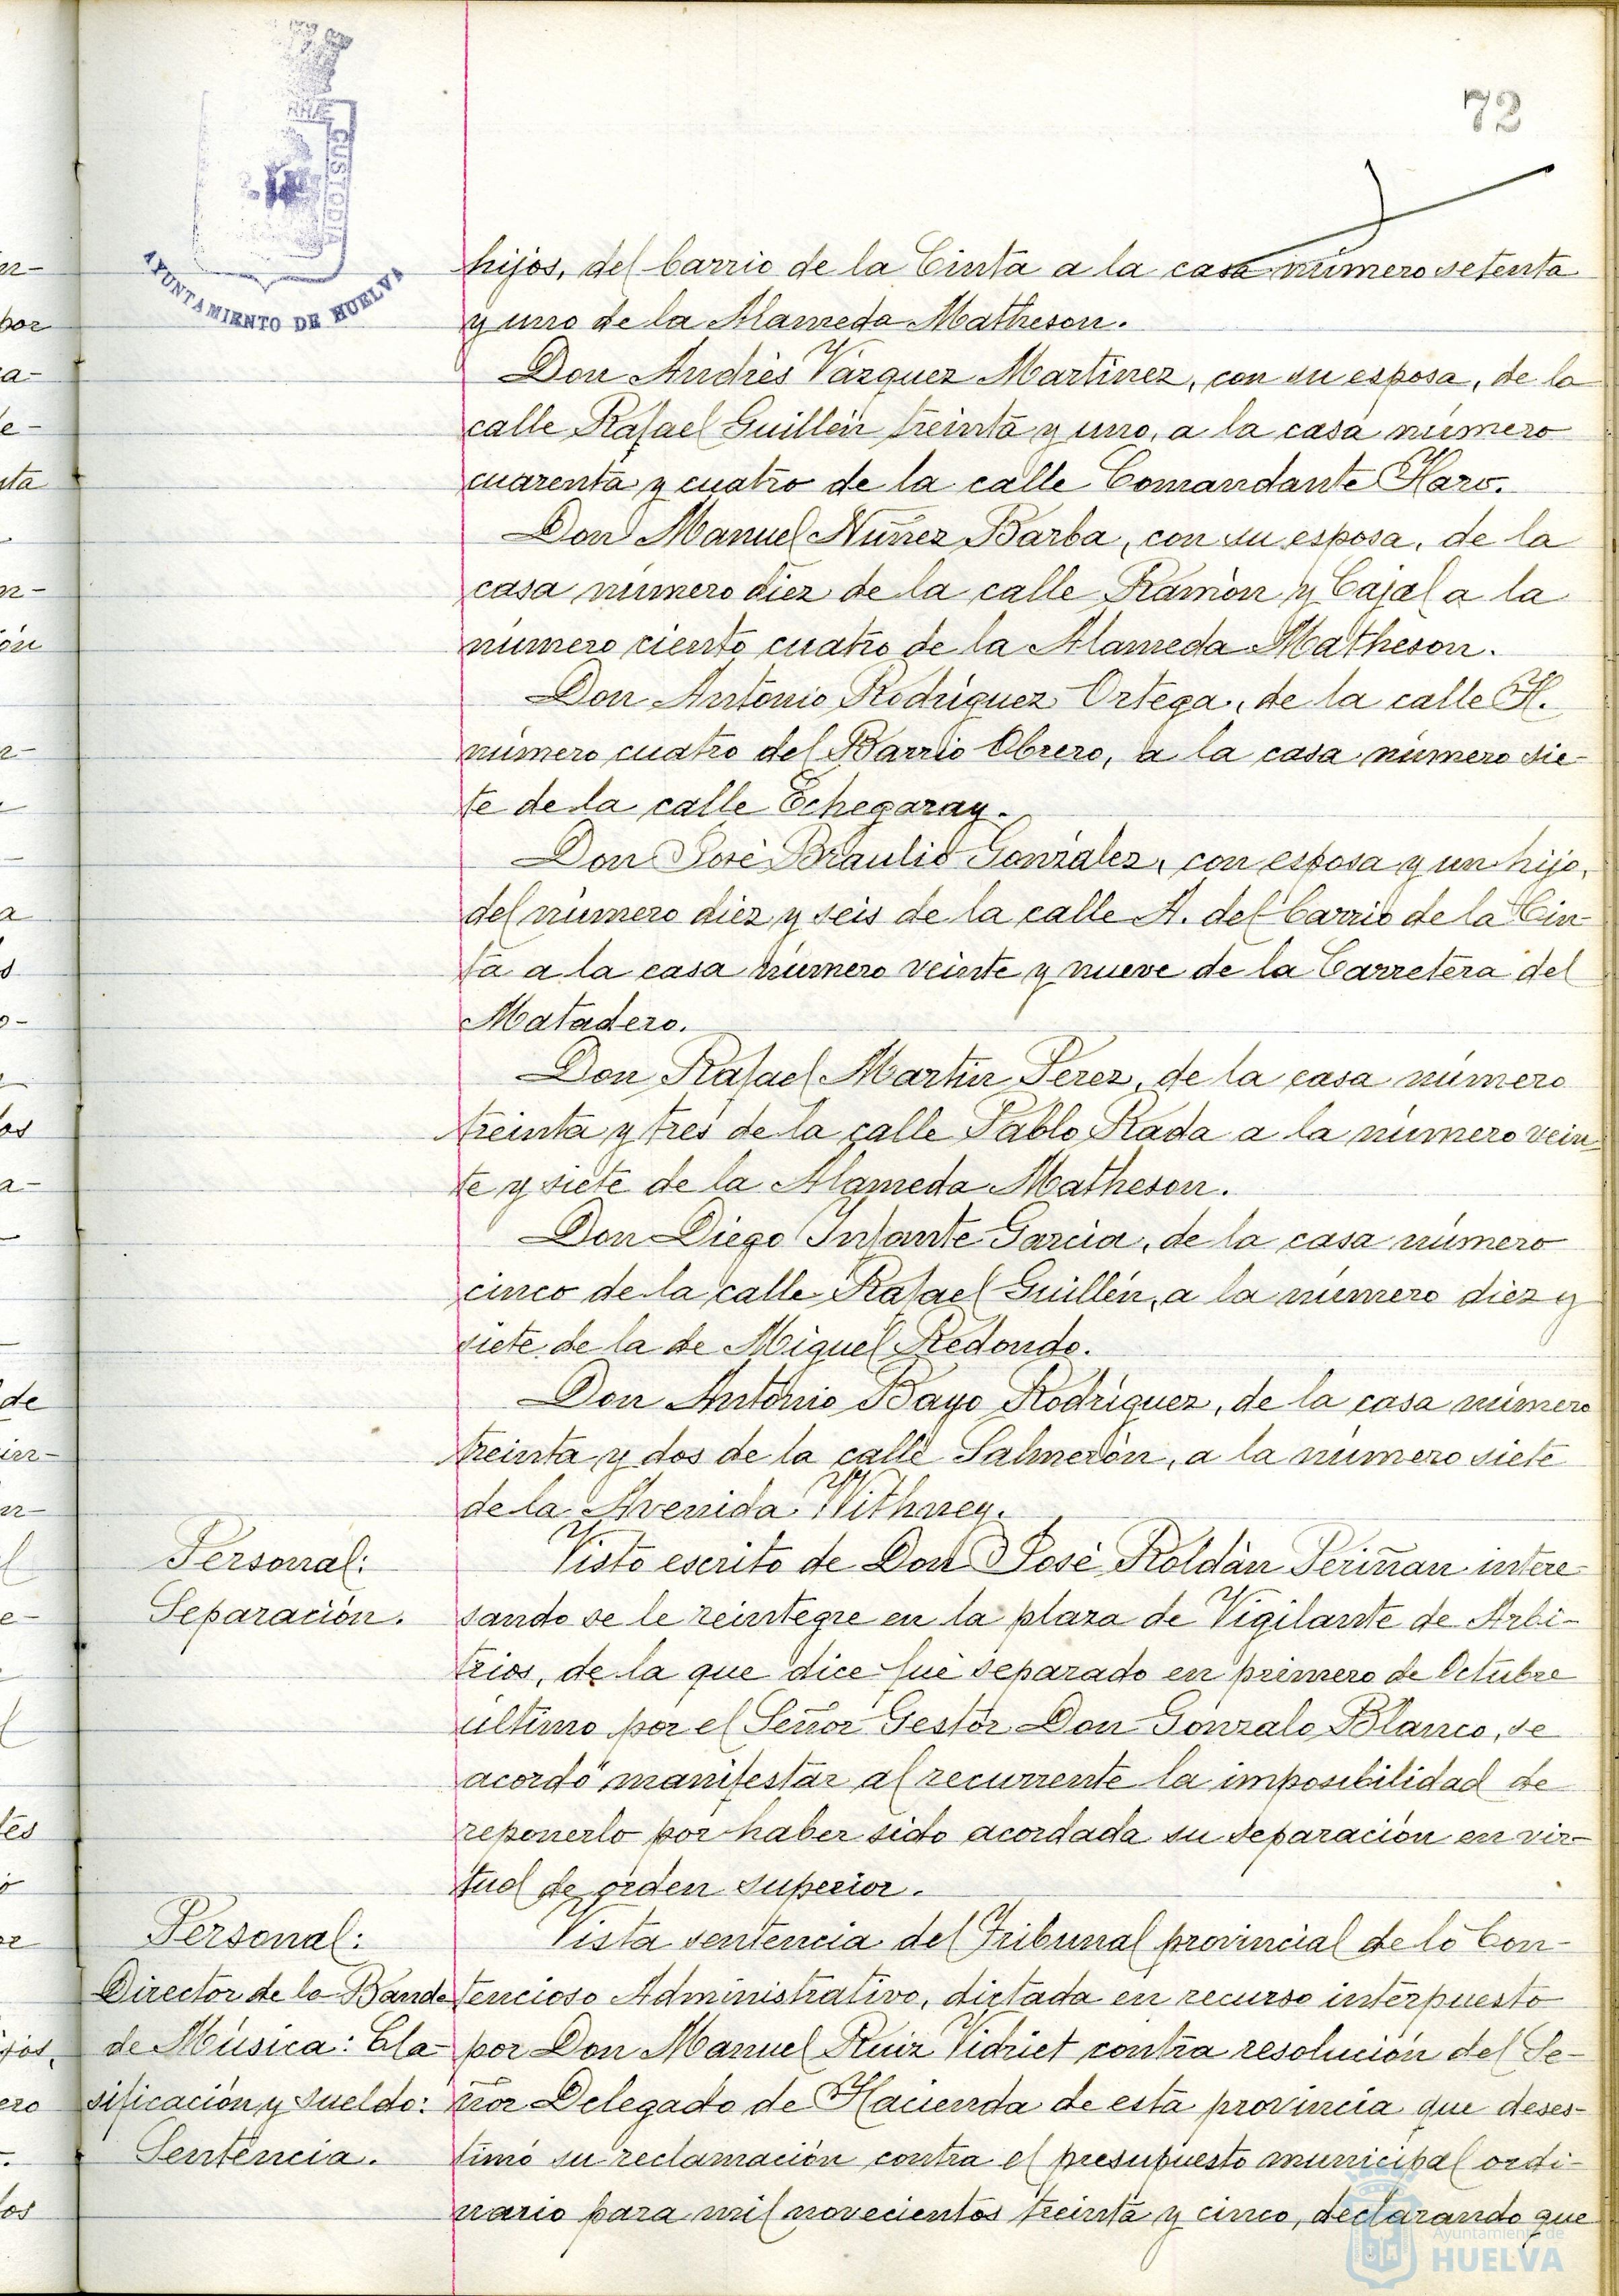 72
CUSTODIA
AYUNTAMIENTO DE HUELVA
hijos, del barrio de la Cinta a la casa número setenta
y uno de la Alameda Matheson.
Don Andrés Vázquez Martínez, con su esposa, de la
calle Rafael Guillén treinta y uno, a la casa número
cuarenta y cuatro de la calle Comandante Haro.
Don Manuel Núñez Barba, con su esposa, de la
casa número diez de la calle Ramón y Cajal a la
número ciento cuatro de la Alameda Matheson.
Don Antonio Rodríguez Ortega, de la calle H.
número cuatro del Barrio Obrero, a la casa número sie-
te de la calle Echegaray.
Don José Braulio González, con esposa y un hijo,
del número diez y seis de la calle A. del barrio de la Cin-
ta a la casa número veinte y nueve de la Carretera del
Matadero.
Don Rafael Martín Pérez, de la casa número
treinta y tres de la calle Pablo Rada a la número vein
te y siete de la Alameda Matheson.
Don Diego Infante García, de la casa número
cinco de la calle Rafael Guillén, a la número diez y
siete de la de Miguel Redondo.
Don Antonio Bayo Rodríguez, de la casa número
treinta y dos de la calle Salmerón, a la número siete
de la Avenida Withney.
Personal:
Separación.
Visto escrito de Don José Roldán Periñan intere-
sando se le reintegre en la plaza de Vigilante de Arbi-
trios, de la que dice fué separado en primero de Octubre
último por el Señor Gestor Don Gonzalo Blanco, se
acordó manifestar al recurrente la imposibilidad de
reponerlo por haber sido acordada su separación en vir-
tud de orden superior.
Personal:
Director de la Banda
de Música: Cla-
sificación y sueldo:
Sentencia.
Vista sentencia del Tribunal provincial de lo Con-
tencioso Administrativo, dictada en recurso interpuesto
por Don Manuel Ruiz Vidriet contra resolución del Se-
ñor Delegado de Hacienda de esta provincia que deses-
timó su reclamación contra el presupuesto municipal ordi-
nario para mil novecientos treinta y cinco, declarando que
Ayuntamiento de
HUELVA